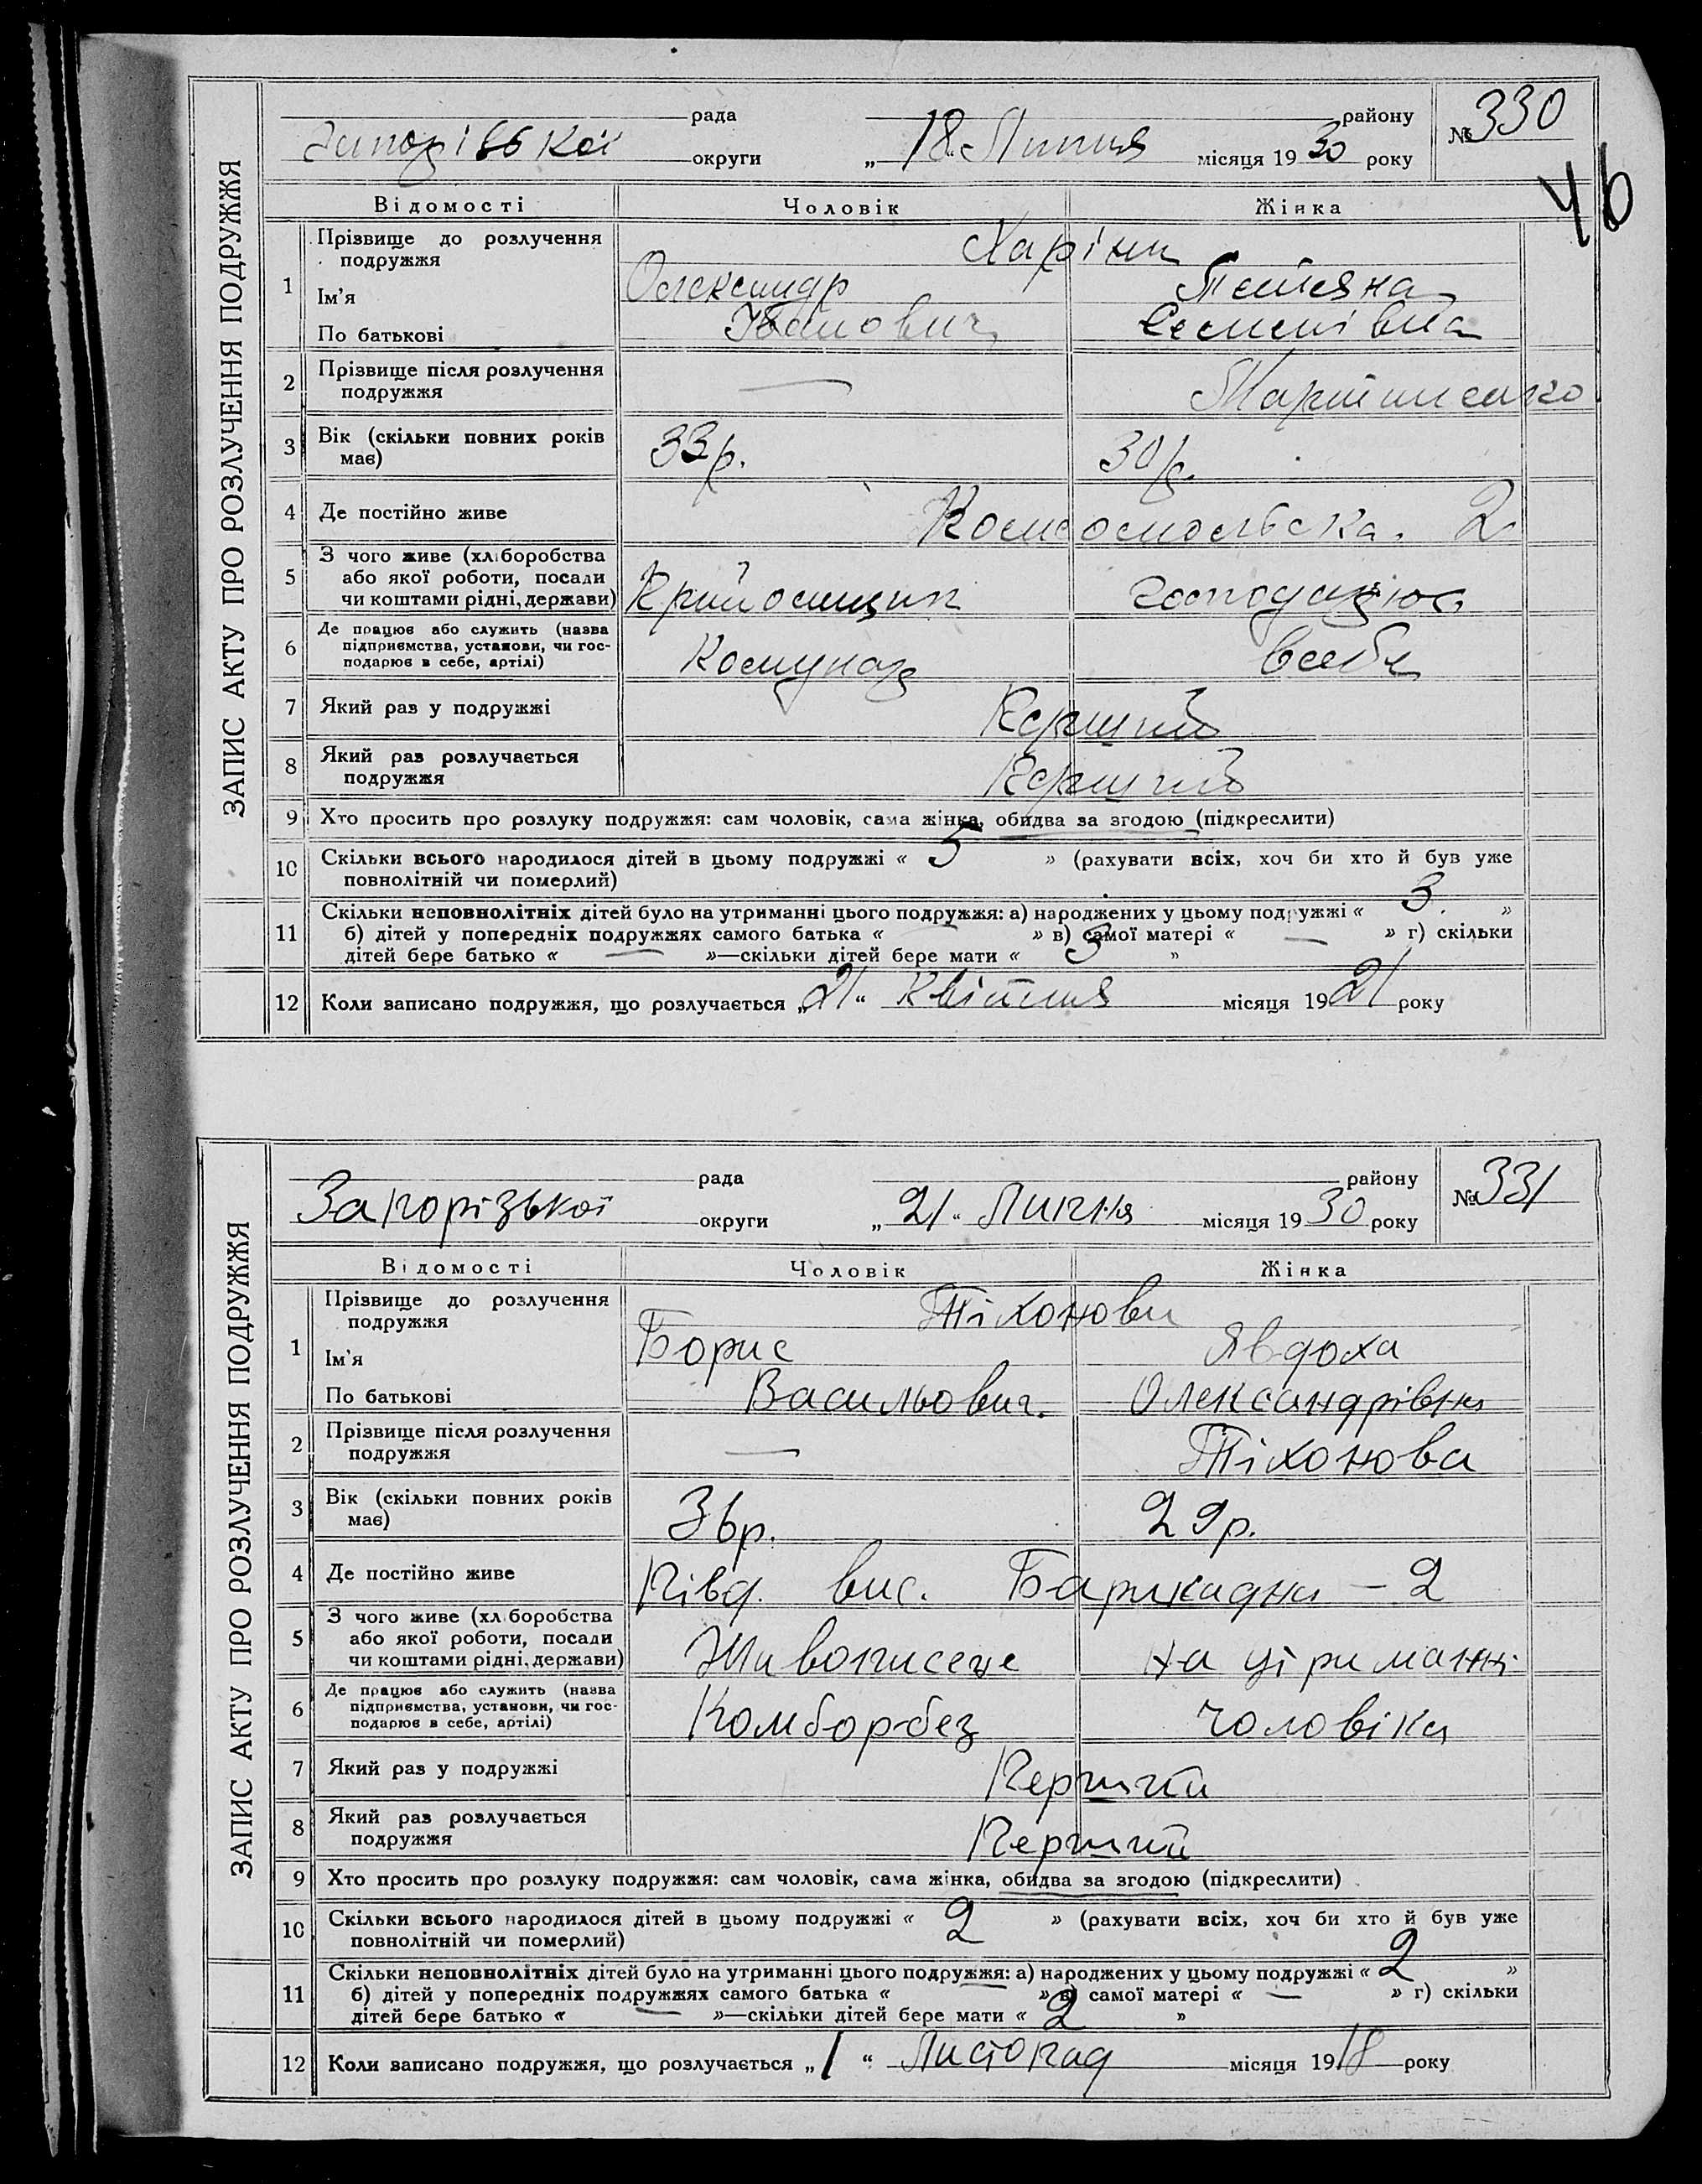 ЗАПИС АКТУ ПРО РОЗЛУЧЕННЯ ПОДРУЖЖЯ
рада району № 330
округи „18“ Липня місяця 1930 року
46
Відомості Чоловік Жінка
1 Прізвище до розлучення подружжя Харіни
Ім'я Олександр Тетяна
По батькові Іванович Семенівна
2 Прізвище після розлучення подружжя — Мартиненко
3 Вік (скільки повних років має) 33р. 30р.
4 Де постійно живе Комсомольська. 2
5 З чого живе (хліборобства або якої роботи, посади чи коштами рідні, держави)
6 Де працює або служить (назва підприємства, установи, чи господарює в себе, артілі) в себе
7 Який раз у подружжі Перший
8 Який раз розлучається подружжя Перший
9 Хто просить про розлуку подружжя: сам чоловік, сама жінка, обидва за згодою (підкреслити)
10 Скільки всього народилося дітей в цьому подружжі « 5 » (рахувати всіх, хоч би хто й був уже
повнолітній чи померлий)
11 Скільки неповнолітніх дітей було на утриманні цього подружжя: а) народжених у цьому подружжі « 3 »
б) дітей у попередніх подружжях самого батька « — » в) самої матері « — » г) скільки
дітей бере батько « — »—скільки дітей бере мати « 3 »
12 Коли записано подружжя, що розлучається „21“ Квітня місяця 1921 року
ЗАПИС АКТУ ПРО РОЗЛУЧЕННЯ ПОДРУЖЖЯ
рада району № 331
Запорізької округи „21“ Липня місяця 1930 року
Відомості Чоловік Жінка
1 Прізвище до розлучення подружжя Тіхонови
Ім'я Борис Явдоха
По батькові Васильович. Олександрівна
2 Прізвище після розлучення подружжя — Тіхонова
3 Вік (скільки повних років має) 36р. 29р.
4 Де постійно живе Півд. вис. Барикадна — 2
5 З чого живе (хліборобства або якої роботи, посади чи коштами рідні, держави) на утриманні
6 Де працює або служить (назва підприємства, установи, чи господарює в себе, артілі) Комборбез чоловіка
7 Який раз у подружжі Перший
8 Який раз розлучається подружжя Перший
9 Хто просить про розлуку подружжя: сам чоловік, сама жінка, обидва за згодою (підкреслити)
10 Скільки всього народилося дітей в цьому подружжі « 2 » (рахувати всіх, хоч би хто й був уже
повнолітній чи померлий)
11 Скільки неповнолітніх дітей було на утриманні цього подружжя: а) народжених у цьому подружжі « 2 »
б) дітей у попередніх подружжях самого батька « — » в) самої матері « — » г) скільки
дітей бере батько « — »—скільки дітей бере мати « 2 »
12 Коли записано подружжя, що розлучається „1“ Листопад місяця 1918 року